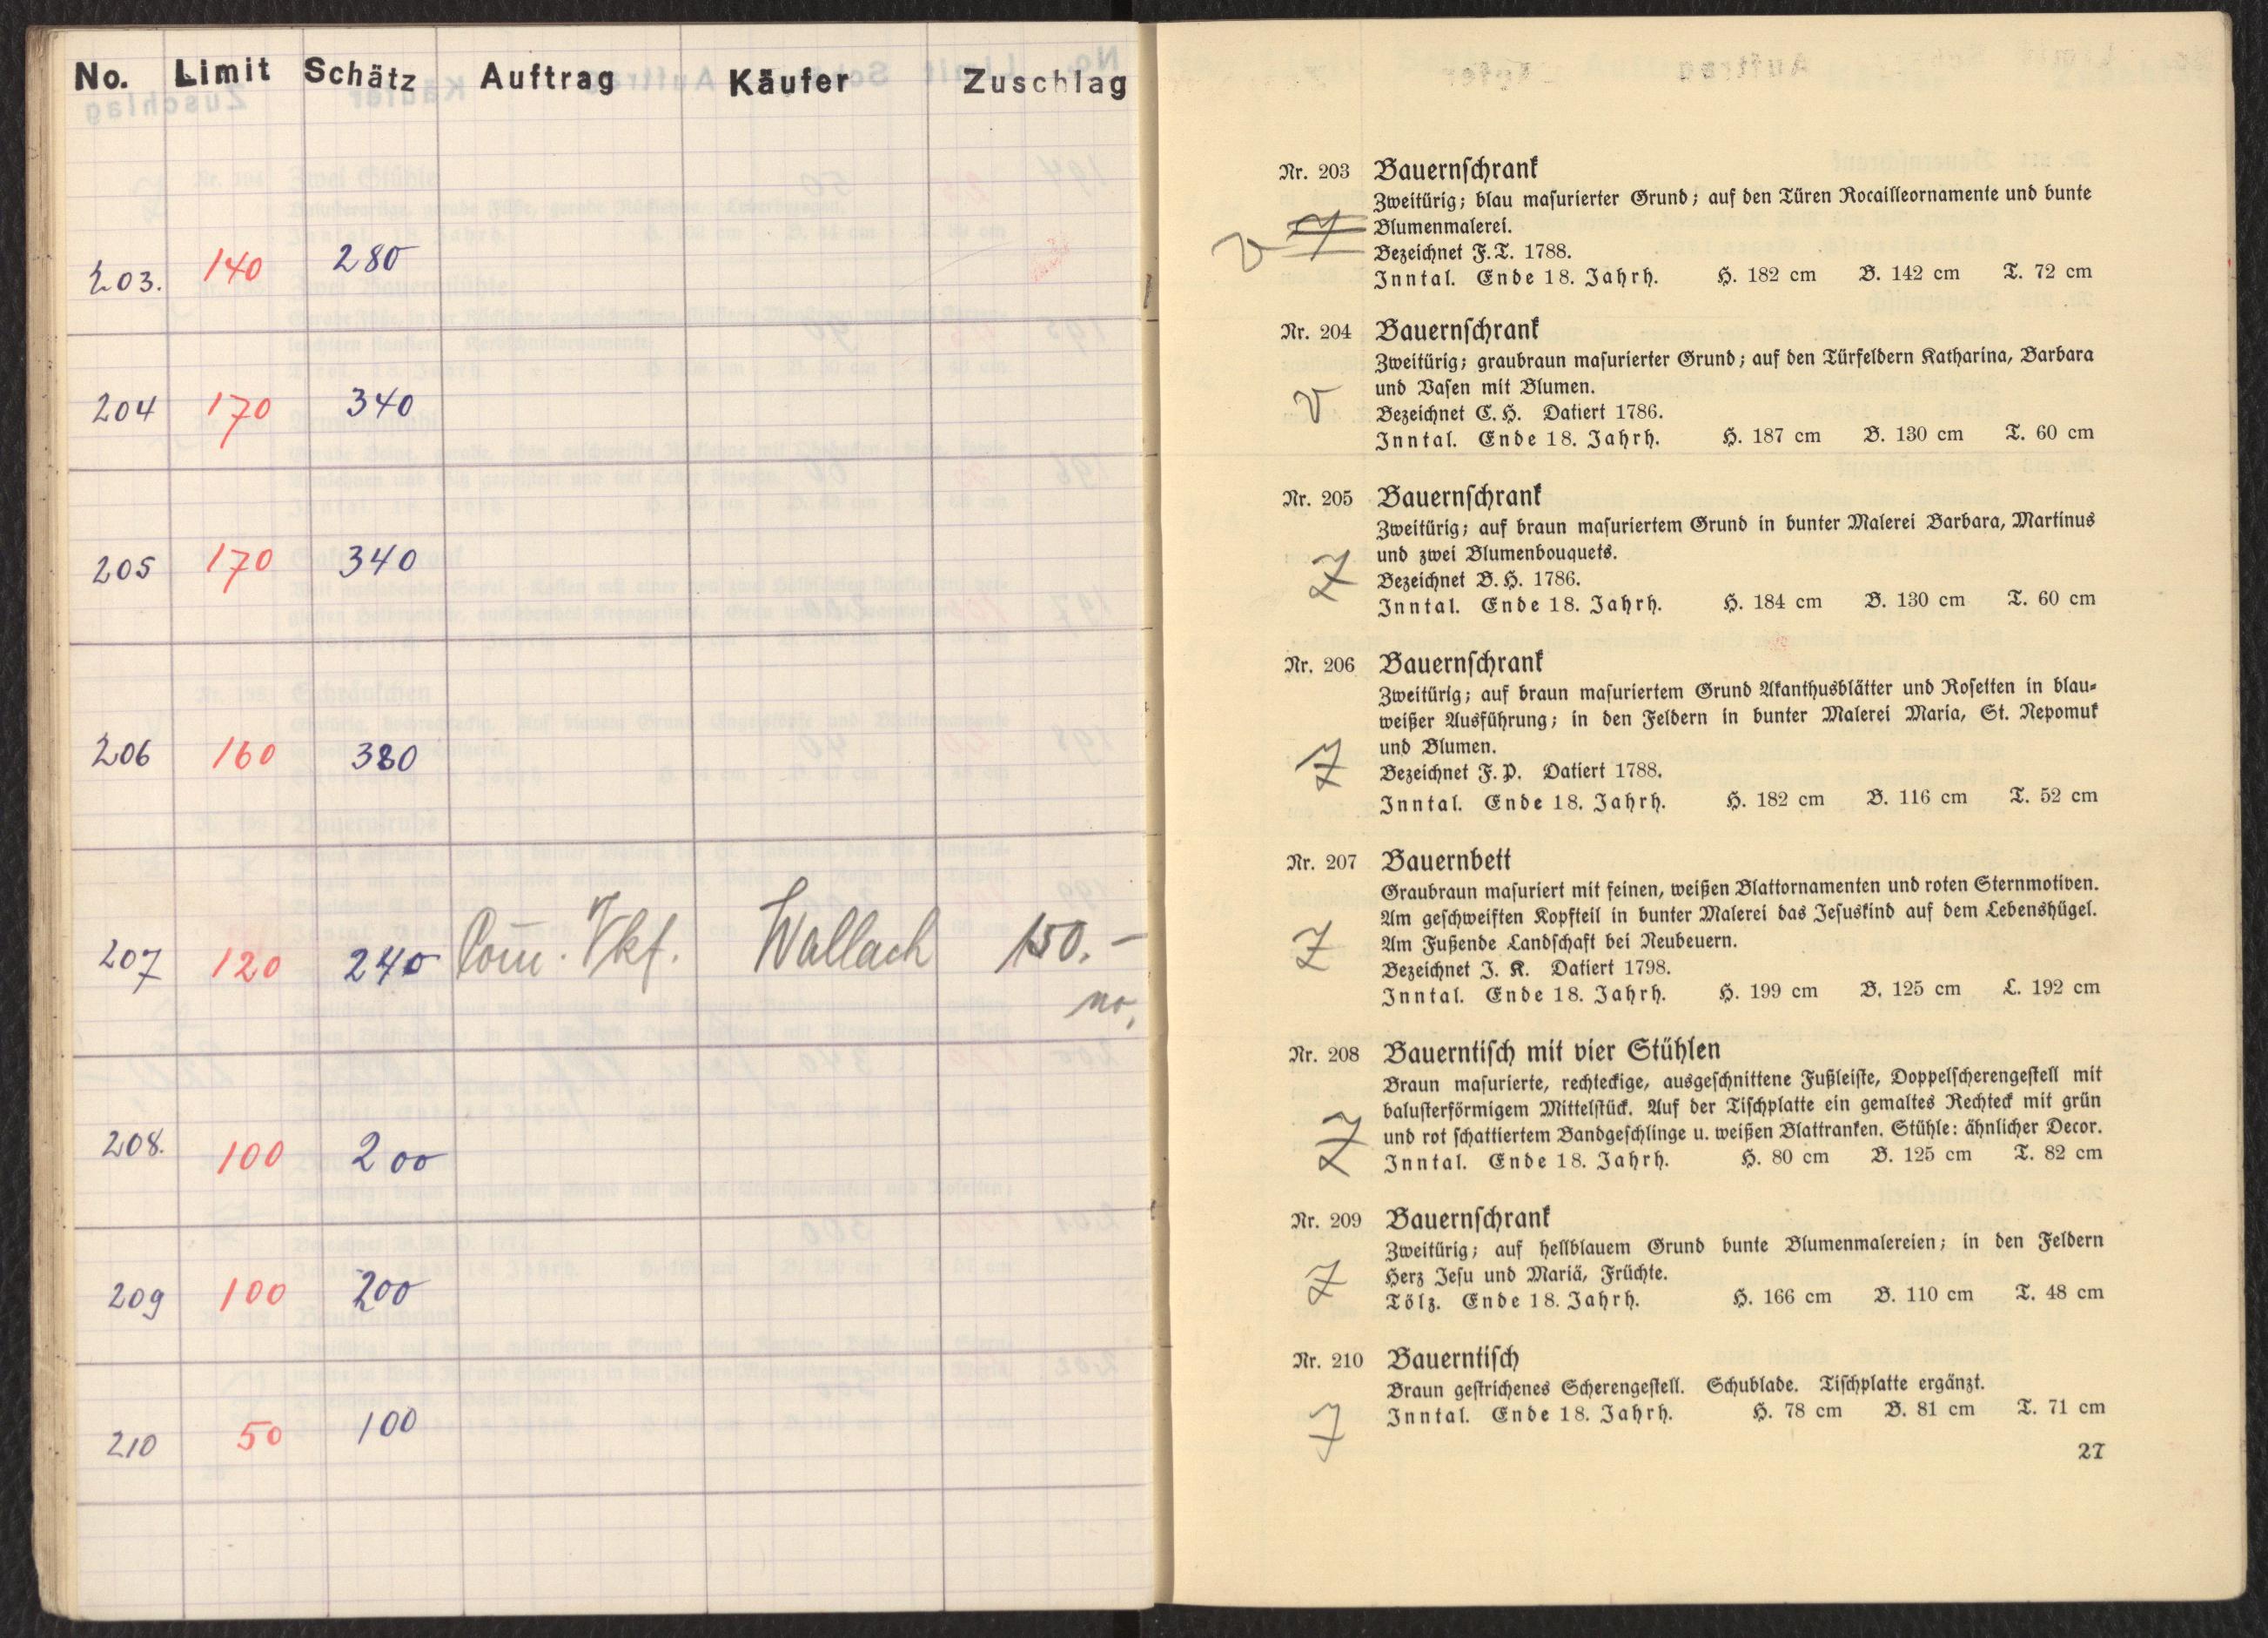 No. Limit Schätz Auftrag Käufer Zuschlag
203. 140 280
204 170 340
205 170 340
206 160 320
207 120 240 Com. Vkf. Wallach 150.–
no.
208. 100 200
209 100 200
210 50 100
Nr. 203 Bauernschrank
Zweitürig; blau masurierter Grund; auf den Türen Rocailleornamente und bunte
Blumenmalerei.
Bezeichnet F. T. 1788.
Inntal. Ende 18. Jahrh. H. 182 cm B. 142 cm T. 72 cm
Nr. 204 Bauernschrank
Zweitürig; graubraun masurierter Grund; auf den Türfeldern Katharina, Barbara
und Vasen mit Blumen.
Bezeichnet C. H. Datiert 1786.
Inntal. Ende 18. Jahrh. H. 187 cm B. 130 cm T. 60 cm
Nr. 205 Bauernschrank
Zweitürig; auf braun masuriertem Grund in bunter Malerei Barbara, Martinus
und zwei Blumenbouquets.
Bezeichnet B. H. 1786.
Inntal. Ende 18. Jahrh. H. 184 cm B. 130 cm T. 60 cm
Nr. 206 Bauernschrank
Zweitürig; auf braun masuriertem Grund Akanthusblätter und Rosetten in blau-
weißer Ausführung; in den Feldern in bunter Malerei Maria, St. Nepomuk
und Blumen.
Bezeichnet F. P. Datiert 1788.
Inntal. Ende 18. Jahrh. H. 182 cm B. 116 cm T. 52 cm
Nr. 207 Bauernbett
Graubraun masuriert mit feinen, weißen Blattornamenten und roten Sternmotiven.
Am geschweiften Kopfteil in bunter Malerei das Jesuskind auf dem Lebenshügel.
Am Fußende Landschaft bei Neubeuern.
Bezeichnet J. K. Datiert 1798.
Inntal. Ende 18. Jahrh. H. 199 cm B. 125 cm L. 192 cm
Nr. 208 Bauerntisch mit vier Stühlen
Braun masurierte, rechteckige, ausgeschnittene Fußleiste, Doppelscherengestell mit
balusterförmigem Mittelstück. Auf der Tischplatte ein gemaltes Rechteck mit grün
und rot schattiertem Bandgeschlinge u. weißen Blattranken. Stühle: ähnlicher Decor.
Inntal. Ende 18. Jahrh. H. 80 cm B. 125 cm T. 82 cm
Nr. 209 Bauernschrank
Zweitürig; auf hellblauem Grund bunte Blumenmalereien; in den Feldern
Herz Jesu und Mariä, Früchte.
Tölz. Ende 18. Jahrh. H. 166 cm B. 110 cm T. 48 cm
Nr. 210 Bauerntisch
Braun gestrichenes Scherengestell. Schublade. Tischplatte ergänzt.
Inntal. Ende 18. Jahrh. H. 78 cm B. 81 cm T. 71 cm
27